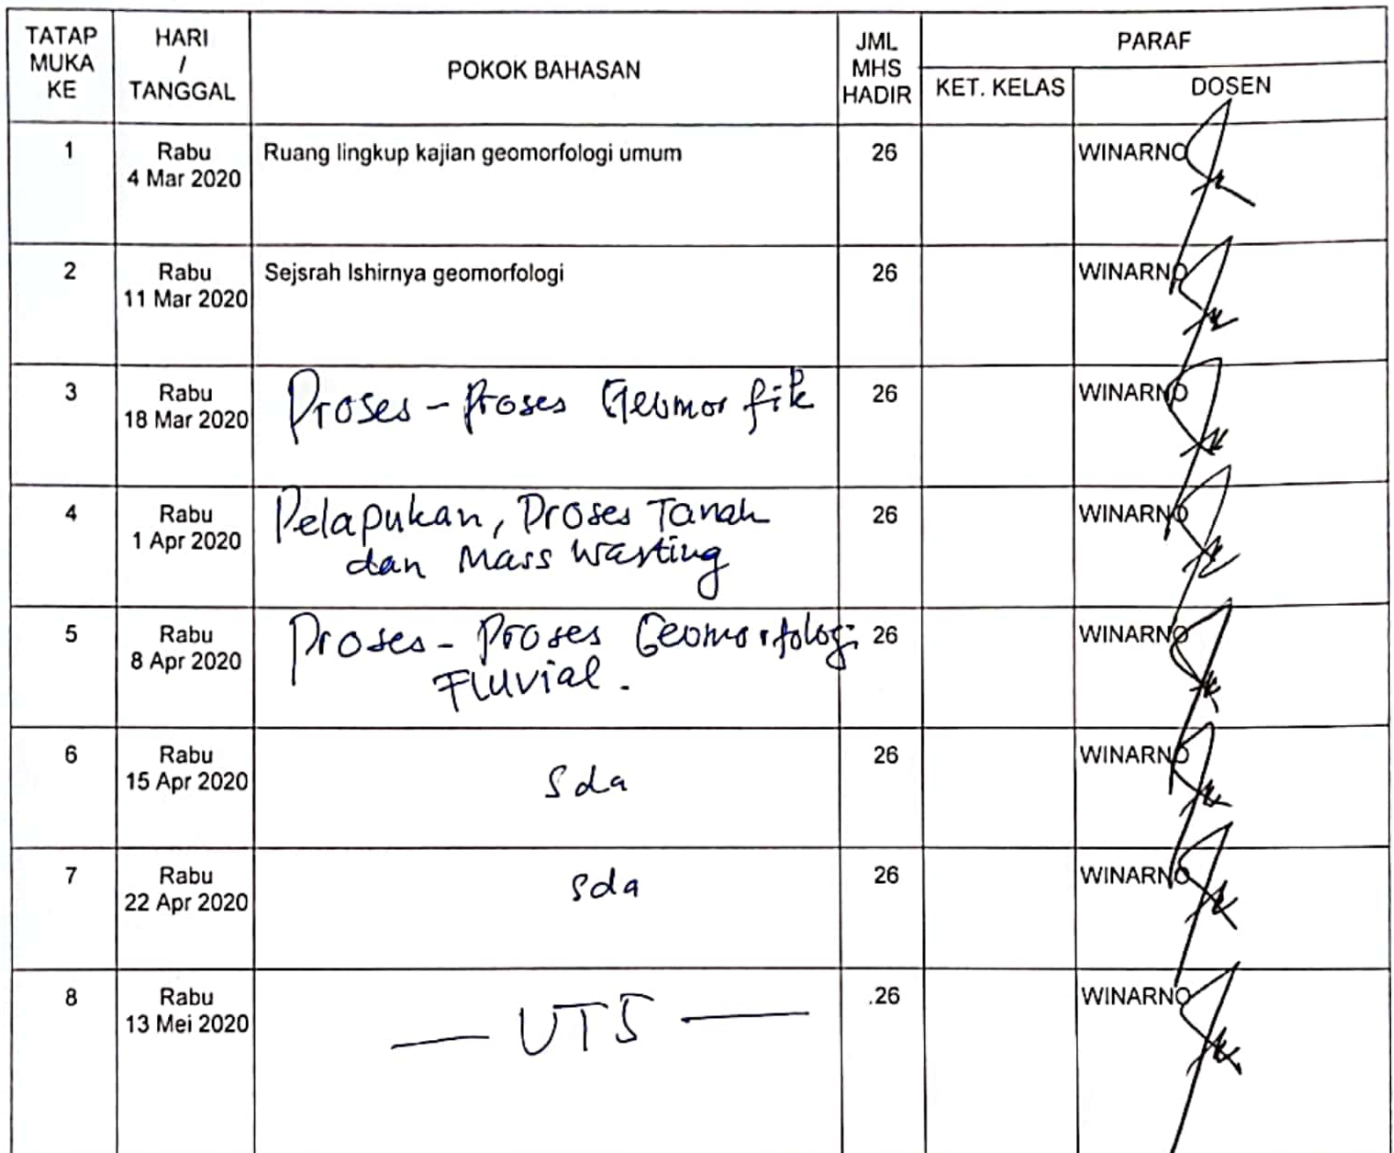 TATAP MUKA KE
HARI / TANGGAL
POKOK BAHASAN
JML MHS HADIR
PARAF
KET. KELAS
DOSEN
1
Rabu
4 Mar 2020
Ruang lingkup kajian geomorfologi umum
26
WINARNO
2
Rabu
11 Mar 2020
Sejsrah Ishirnya geomorfologi
26
WINARNO
3
Rabu
18 Mar 2020
Proses - Proses Geomorfik
26
WINARNO
4
Rabu
1 Apr 2020
Pelapukan, Proses Tanah
dan Mass Wasting
26
WINARNO
5
Rabu
8 Apr 2020
Proses - Proses Geomorfologi
Fluvial.
26
WINARNO
6
Rabu
15 Apr 2020
sda
26
WINARNO
7
Rabu
22 Apr 2020
sda
26
WINARNO
8
Rabu
13 Mei 2020
— UTS —
.26
WINARNO